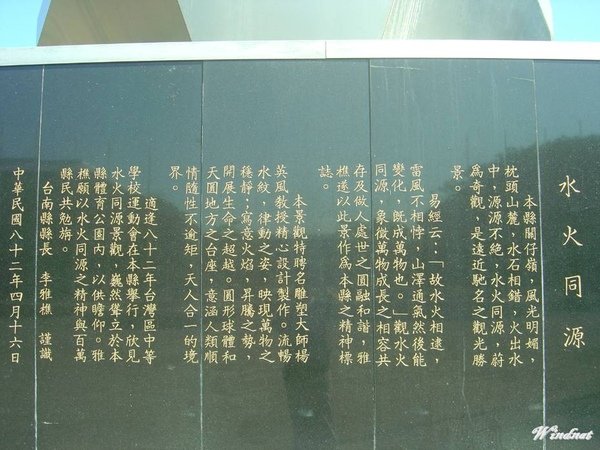 水火同源
本縣關仔嶺，風光明媚，
枕頭山麓，水石相錯，火出水
中，源源不絕，水火同源，蔚
為奇觀，是遠近馳名之觀光勝
景。
易經云：「故水火相逮，
雷風不相悖，山澤通氣然後能
變化，既成萬物也。」觀水火
同源，象徵萬物成長之相容共
存及做人處世之圓融和諧，雅
樵遂以此景作為本縣之精神標
誌。
本景觀特聘名雕塑大師楊
英風教授精心設計製作。流暢
水紋，律動之姿，映現萬物之
穩靜；寫意火焰，昇騰之勢，
開展生命之超越。圓形球體和
天圓地方之台座，意涵人類順
情隨性不逾矩，天人合一的境
界。
適逢八十二年台灣區中等
學校運動會在本縣舉行，欣見
水火同源景觀，巍然聳立於本
縣體育公園內，以供瞻仰。雅
樵願以水火同源之精神與百萬
縣民共勉旃。
台南縣縣長　李雅樵　謹識
中華民國八十二年四月十六日
Windnat